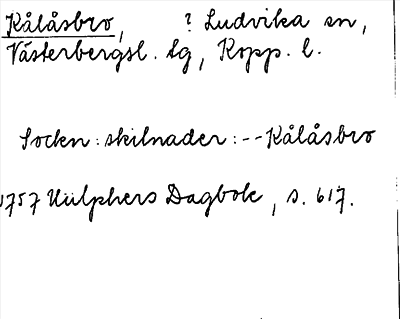 Kålåsbro, ? Ludvika sn,
Västerbergsl. tg, Kopp. l.
Socken: skilnader: -- Kålåsbro
1757 Hülphers Dagbok, s. 617.